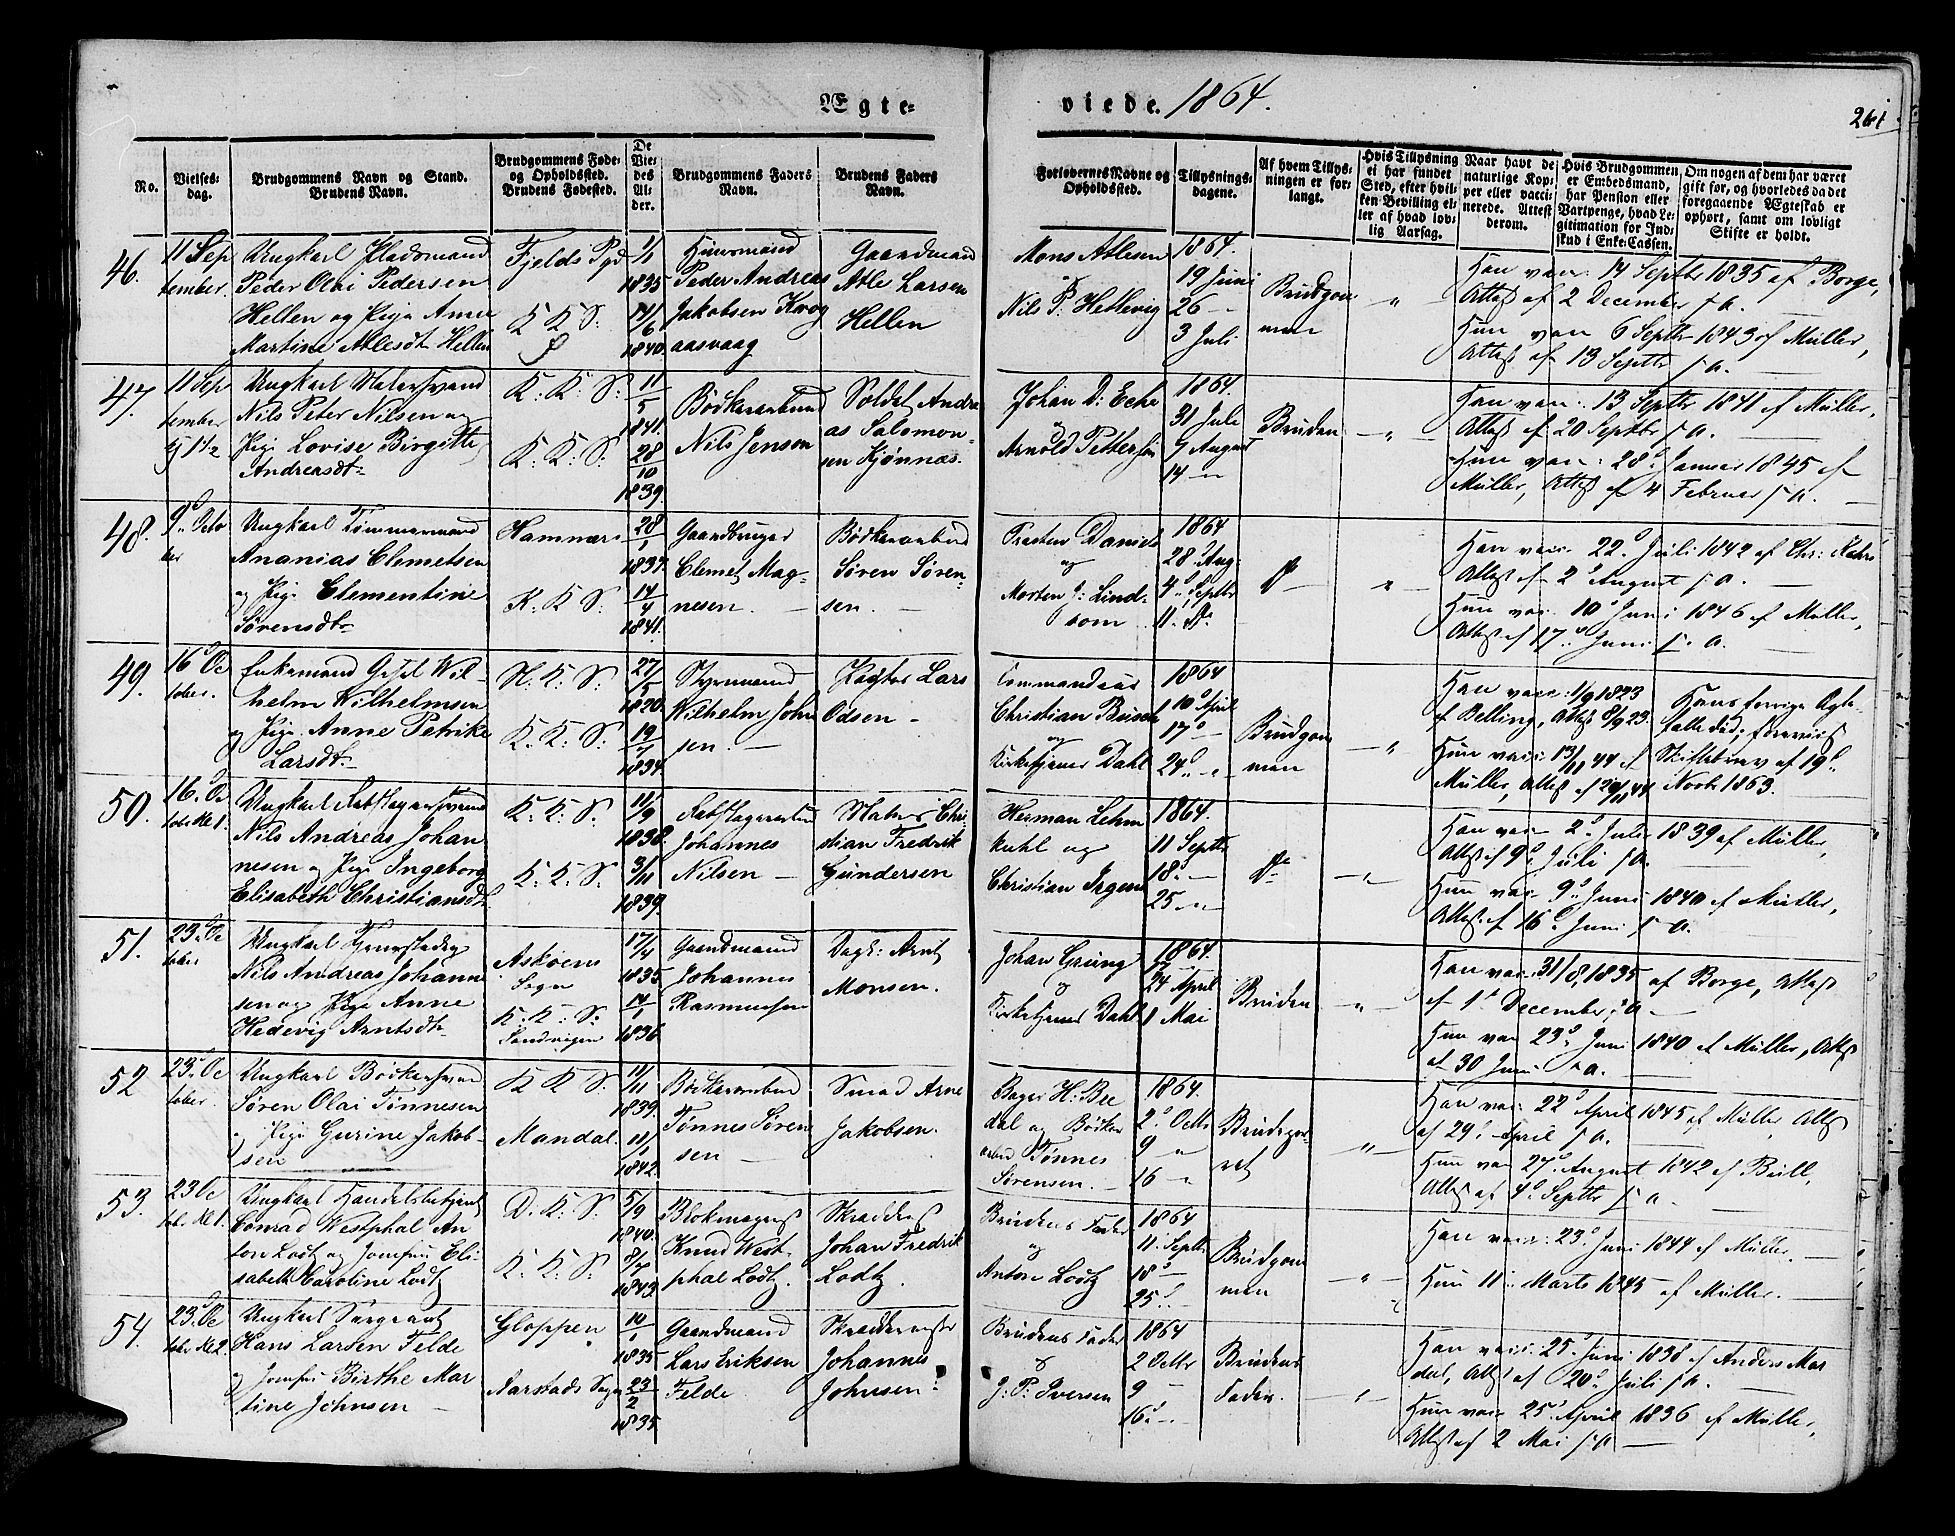 Ægte-
viede. 1864.
261
No.
Vielses-
dag.
Brudgommens Navn og Stand.
Brudens Navn.
Brudgommens Føde-
og Opholdssted.
Brudens Fødested.
De
Vie-
des
Al-
der.
Brudgommens Faders
Navn.
Brudens Faders
Navn.
Forlovernes Navne og
Opholdssted.
Tillysnings-
dagene.
Af hvem Tillys-
ningen er for-
langt.
Hvis Tillysning
ei har fundet
Sted, efter hvil-
ken Bevilling el-
ler af hvad lov-
lig Aarsag.
Naar havt de
naturlige Kop-
per eller vacci-
nerede. Attest
derom.
Hvis Brudgommen
er Embedsmand,
har Pension eller
Vartpenge, hvad Le-
gitimation for Ind-
skud i Enke-Cassen.
Om nogen af dem har været
gift før, og hvorledes da det
foregaaende Ægteskab er
ophørt, samt om lovligt
Skifte er holdt.
46.
11 Sep
tember.
Ungkarl
Peder Olai Pedersen
Hellen og Pige Anne
Martine Atlesdt. Hellen
Fjelds Pgd
K K S:
1/1
1835
14/6
1840.
Huusmand
Peder Andreas
Jakobsen Krog
aasvaag
Gaardmand
Atle Larsen
Hellen
Mons Atlesen
og
Nils P. Hettevig
1864.
19 Juni
26 –"
3 Juli
Brudgom
men
"
Han vac: 14 Septbr 1835 af Borge,
Attest af 2 December s. a.
Hun vac 6 Septbr 1843 af Müller,
Attest af 13 Septbr s. a.
47.
11 Sep
tember
Kl 1 1/2
Ungkarl Malersvend
Nils Peter Nilsen og
Pige Lovise Birgitte
Andreasdt.
K: K: S:
K: K: S:
11
5
1841.
28
10
1839.
Bødkerarbeid
Nils Jensen
Soldat Andre
as Salomon-
sen Kjønnes.
Johan D: Eche
og
Arnold Pettersen
1864.
31 Juli
7 August
14 –"
Bruden
–"–
Han vac: 13 Septbr 1841 af Müller,
Attest af 20 Septbr s. a.
Hun vac: 28 Januar 1845 af
Müller, Attest af 4 Februar s. a.
48.
9 Octo
ber
Ungkarl Tømmermand
Ananias Clemetsen
og Pige Clementine
Sørensdt.
Hamnærs
K. K S:
28
1
1837.
14
4
1841.
Gaardbruger
Clemet Mag-
nesen. –
Bødkerarbeid
Søren Søren-
sen. –
Daniels
og
Morten J: Lind-
som
1864
28 Aug.
4 Septbr
11. do.
do –
"
Han vac: 22 Juli 1842 af Chr:
Attest af 2 August s. a.
Hun vac. 10 Juni 1846 af Müller,
Attest af 17 Juni s. a.
49.
16 Oc
tober.
Enkemand Wil-
helm Wilhelmsen
og Pige Anne Petrike
Larsdt.
N: K: S:
K. K: S:
27/
5
1820.
19
7
1834.
Styrmand
Wilhelm John
sen. –
Lars
Odsen –
Commandeur
Christian Busch
og
Kirketjener Dahl
1864
10 April
17 –
24 – "
Brudgom
men
–"
Han vac: 1/9 1823
af Belling, Attest 8/9 23.
Hun vac: 13/11 44 af
Müller, Attest af 20/11 44
Hans forrige Ægte-
fælle død; forevist
Skiftebrev af 19
Novbr 1863.
50.
16. Oc
tobr. Kl 1.
Ungkarl Rebslagersvend
Nils Andreas Johan
nesen og Pige Ingeborg
Elisabeth Christiansdt.
K: K: S:
K: K: S:
11/
9
1838.
3/
11
1839.
Rebslagerarbeid
Johannes
Nilsen –
Mater Chri
stian Fredrik
Gundersen
Herman Lehm
kuhl og
Christian Irgens
1864.
11 Septbr
18. –
25 – "
do –
–"–
Han vac 2 Juli 1839 af Müller,
Attest af 9 Juli s. a.
Hun vac. 9 Juni 1840 af Müller,
Attest af 16 Juni s. a.
51.
23. Oc
tober
Ungkarl
Nils Andreas Johanne
sen og Pige Anne
Hedevig Arntsdt.
Askøens
Sogn
K. K: S.
Sandvigen
17/
4
1835
14
1
1836
Gaardmand
Johannes
Rasmussen
Dagk: Arnt
Monsen.
Johan Grung
og
Kirketjener Dahl
1864.
17 –
24 April
1 Mai
Bruden
–"–
Han vac: 31/8, 1835 af Borge, Attest
af 1 December, s. a.
Hun vac 23 Juni 1840 af Müller, Attest
af 30 Juni s. a.
52
23. Oc
tober.
Ungkarl Bødkersvend
Søren Olai Tønnesen
og Pige Gurine Jakob-
sen
K K S:
Mandal.
11/
11
1839.
11/
1
1842.
Bødkerarbeid
Tønnes Søren
sen –
Smed Arne
Jakobsen.
Bager H: Bre
dal og Bødker
arbeid Tønnes
Sørensen.
1864.
2 Octbr
9 "
16 –"
Brudepar
ret
–"–
Han vac: 22 April 1845 af Müller, Attest
af 29 April s. a.
Hun vac 27 August 1842 af Büll,
Attest af 4 Septbr s. a.
53.
23 Oc
tob. Kl 1.
Ungkarl Handelsbetjent
Conrad Westphal An
ton Lodtz og Jomfru Eli
sabeth Caroline Lodtz
D: K: S:
K: K: S:
5/
9
1840.
8/
7
1843.
Blokmager
Knud West-
phal Lodtz.
Skrædder
Johan Fredrik
Lodtz.
Brudens Fader
og
Anton Lodtz
1864
11. Septbr
18 –
25. –
Brudgom
men
–"–
Han vac: 23 Juni 1844 af Müller.
Hun 11 Marts 1845 af Müller.
54.
23. Oc
tobr Kl 2.
Ungkarl Sergeant
Hans Larsen Felde
og Jomfru Birthe Mar
tine Johnsen –
Gloppen
Aarstads Sogn
10
1
1835
23
2
1835
Gaardmand
Lars Eriksen
Felde.
Skræddermester
Johannes
Johnsen
Brudens Fader
&
J: P: Iversen
1864
2 Octbr
9 –
16 –"
Brudens
Fader.
–"–
Han vac: 25 Juni 1838 af Anders Mar
dal, Attest af 20 Juli s. a.
Hun vac: 25 April 1836 af Müller,
Attest af 2 Mai s. a. –